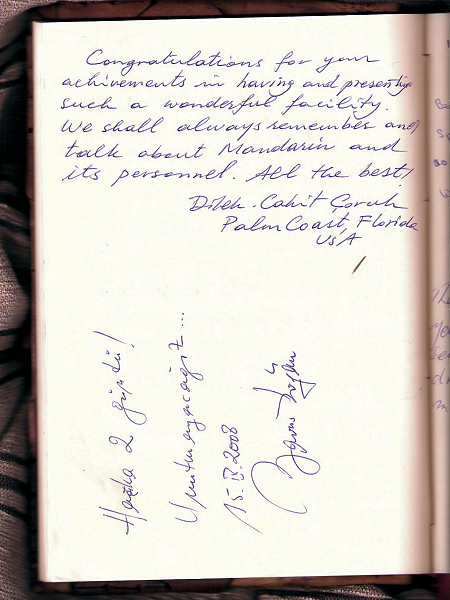 Congratulations for your
achivements in having and presenting
such a wonderful facility.
We shall always remember and
talk about Mandarin and
its personnel. All the best!
Dilek - Cahit Çoruh
Palm Coast, Florida
USA
Harika 2 gündü!
Unutmayacağız...
15.IX.2008